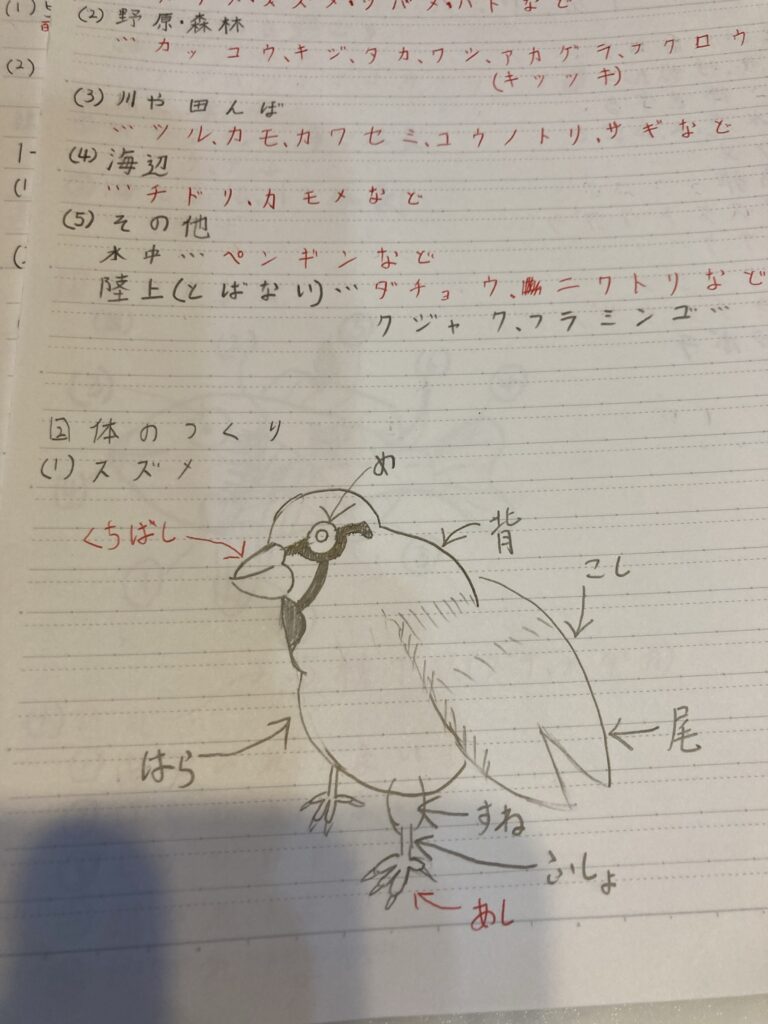 (2) 野原・森林
…カッコウ、キジ、タカ、ワシ、アカゲラ、フクロウ
(キツツキ)
(3) 川や田んぼ
…ツル、カモ、カワセミ、コウノトリ、サギなど
(4) 海辺
…チドリ、カモメなど
(5) その他
水中…ペンギンなど
陸上(とばない)…ダチョウ、ニワトリなど
クジャク、フラミンゴ…
体のつくり
(1) スズメ
め
くちばし
背
こし
尾
はら
すね
ふしょ
あし
(1)
(2)